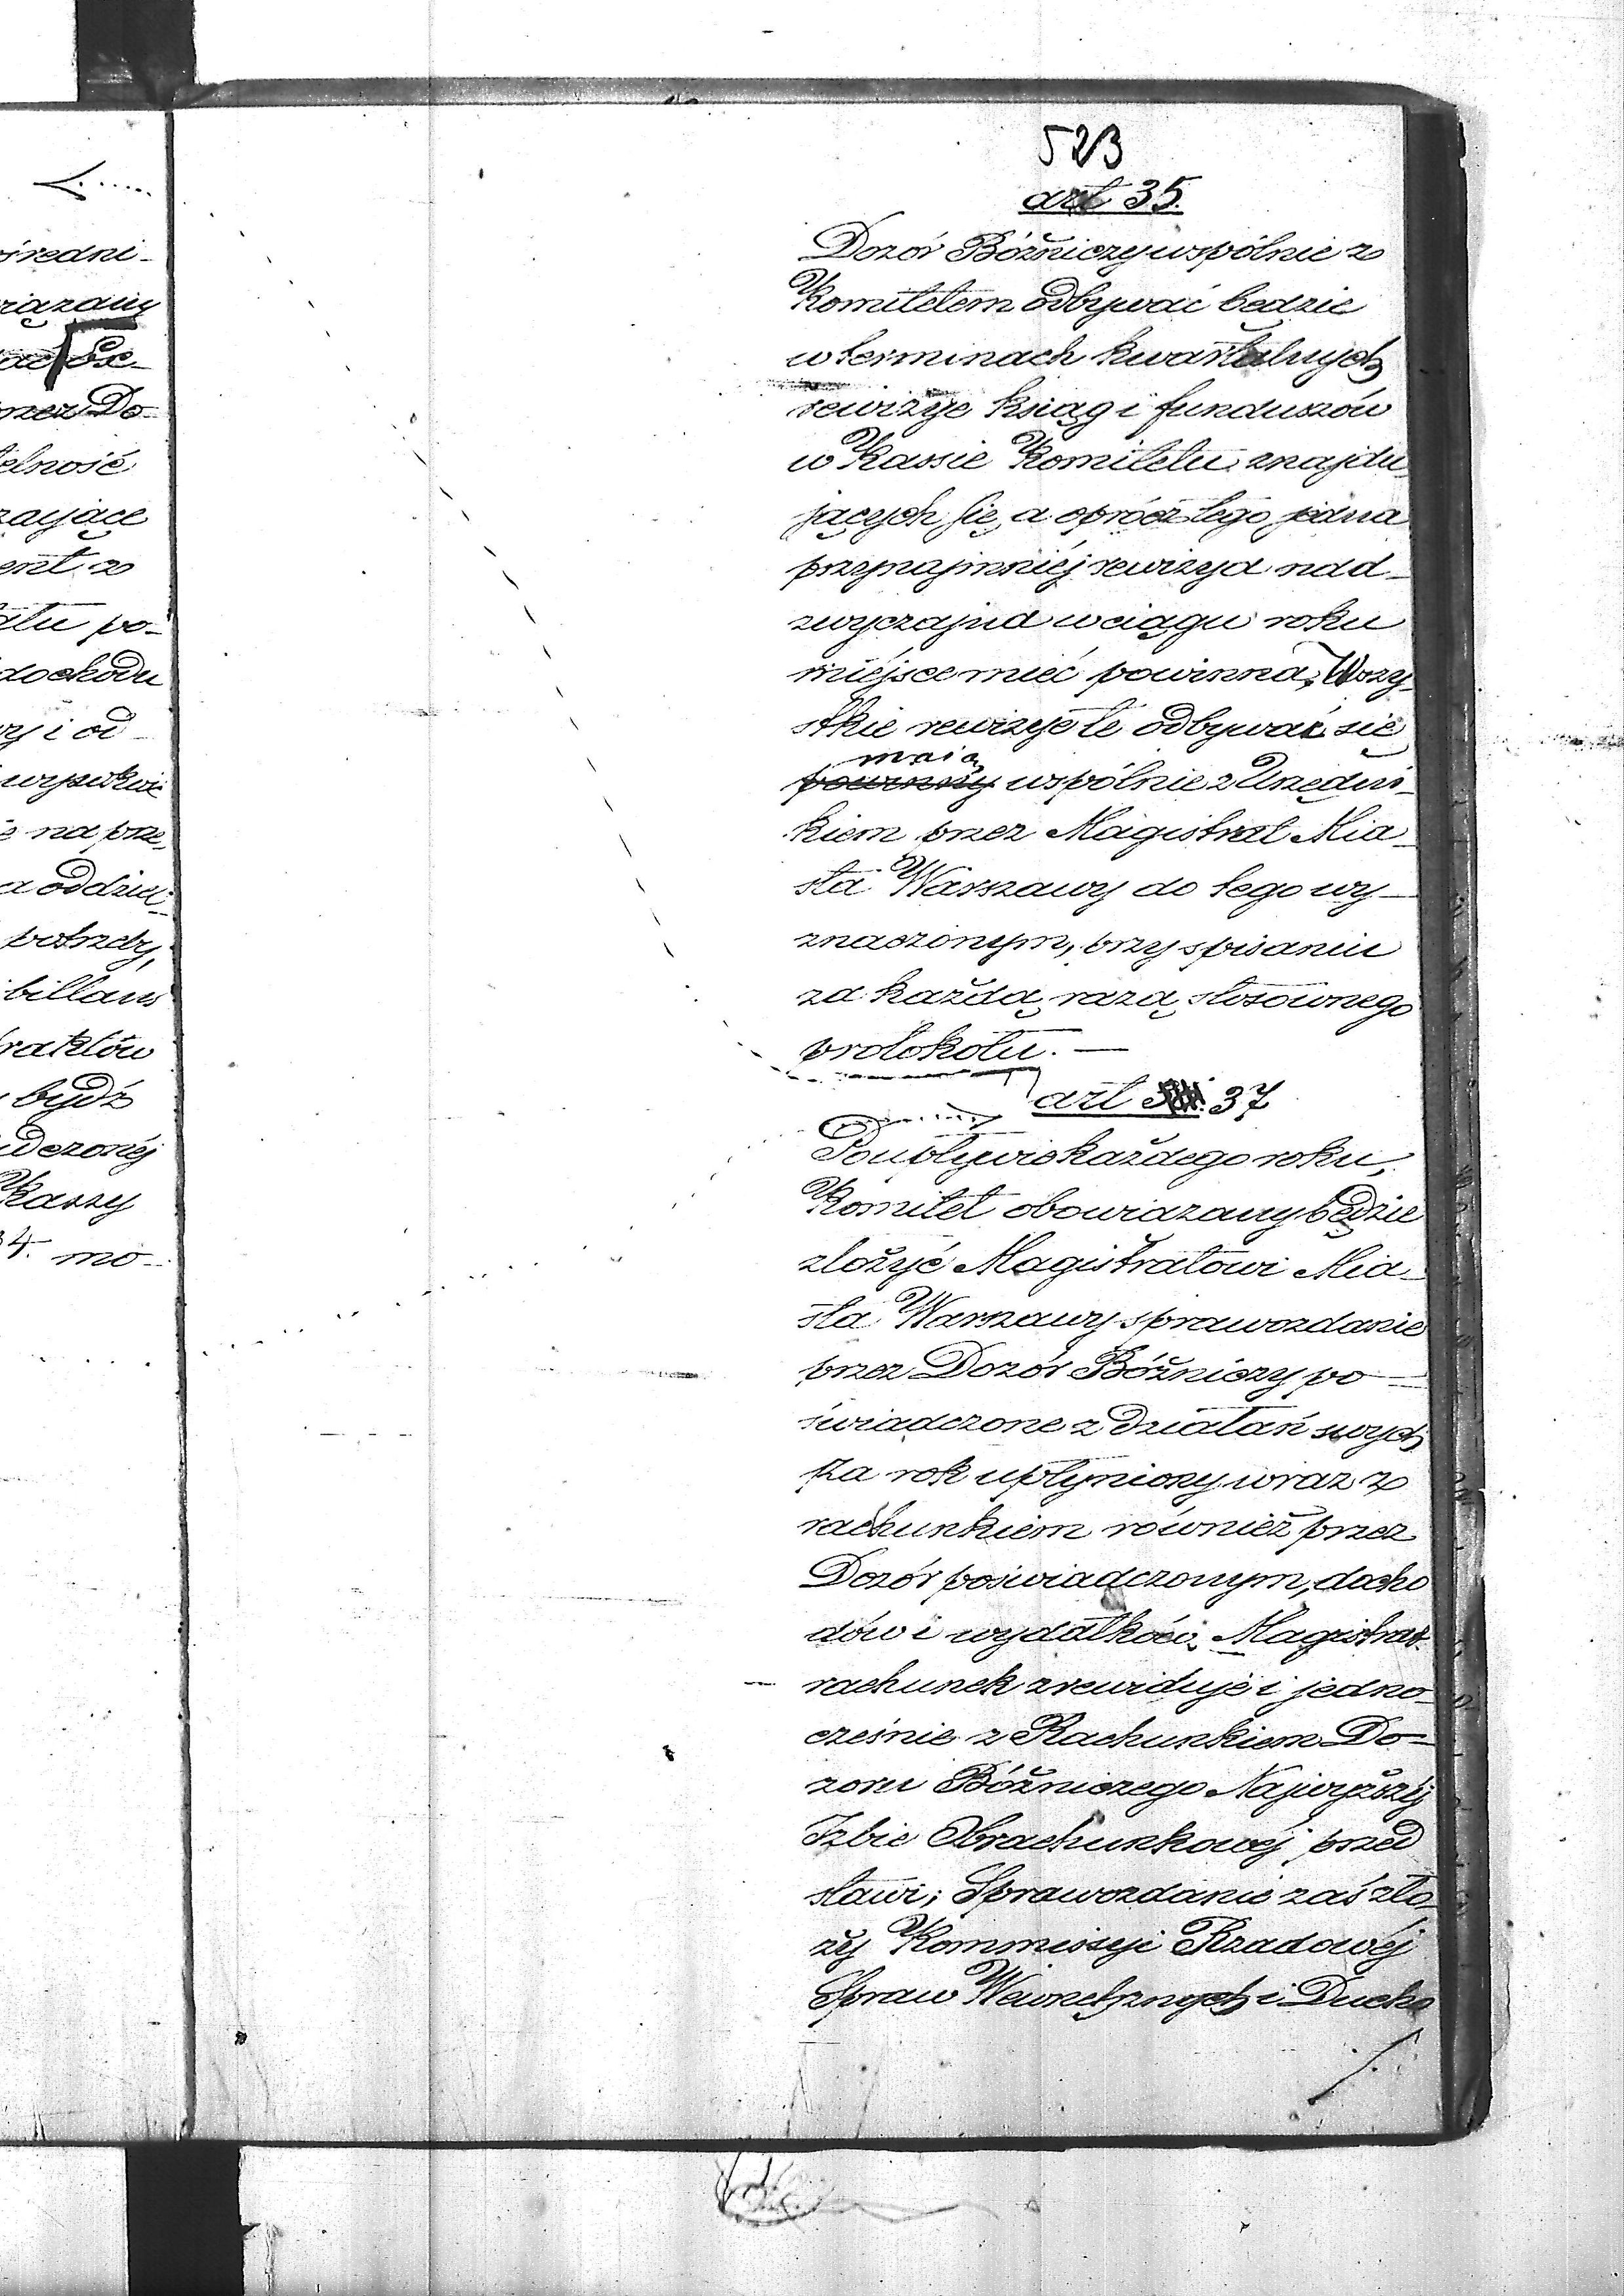 średni-
wiązany
przez Do-
telność
zające
ent z
atu po-
dochodu
i od-
na prze-
a oddziel-
potrzeby,
billans
traktów
bydź
Kassy
34. mo-
523
art 35.
Dozór Bóżniczy wspólnie z
Komitetem odbywać będzie
w terminach kwartalnych
rewizye ksiąg i funduszów
w Kassie Komitetu znajdu
jących się, a oprócz tego jedna
przynajmniéj rewizya nad-
zwyczajna w ciągu roku
miéjsce mieć powinna; Wszy-
stkie rewizye te odbywać się
maią
powinny wspólnie z Urzędni-
kiem przez Magistrat Mia-
sta Warszawy do tego wy-
znaczonym, przy spisaniu
za każdą razą stosownego
protokółu. —
art 37
Po upływie każdego roku,
Komitet obowiązany będzie
złożyć Magistratowi Mia-
sta Warszawy sprawozdanie
przez Dozór Bóżniczy po-
świadczone z działań swych
za rok upłyniony wraz z
rachunkiem również przez
Dozór poświadczonym, docho
dów i wydatków. Magistrat
rachunek zrewiduje i jedno-
cześnie z Rachunkiem Do-
zoru Bóżniczego Najwyższéj
Izbie Obrachunkowéj przed
stawi; Sprawozdanie zaś zło-
ży Kommissyi Rządowéj
Spraw Wewnętrznych i Ducho